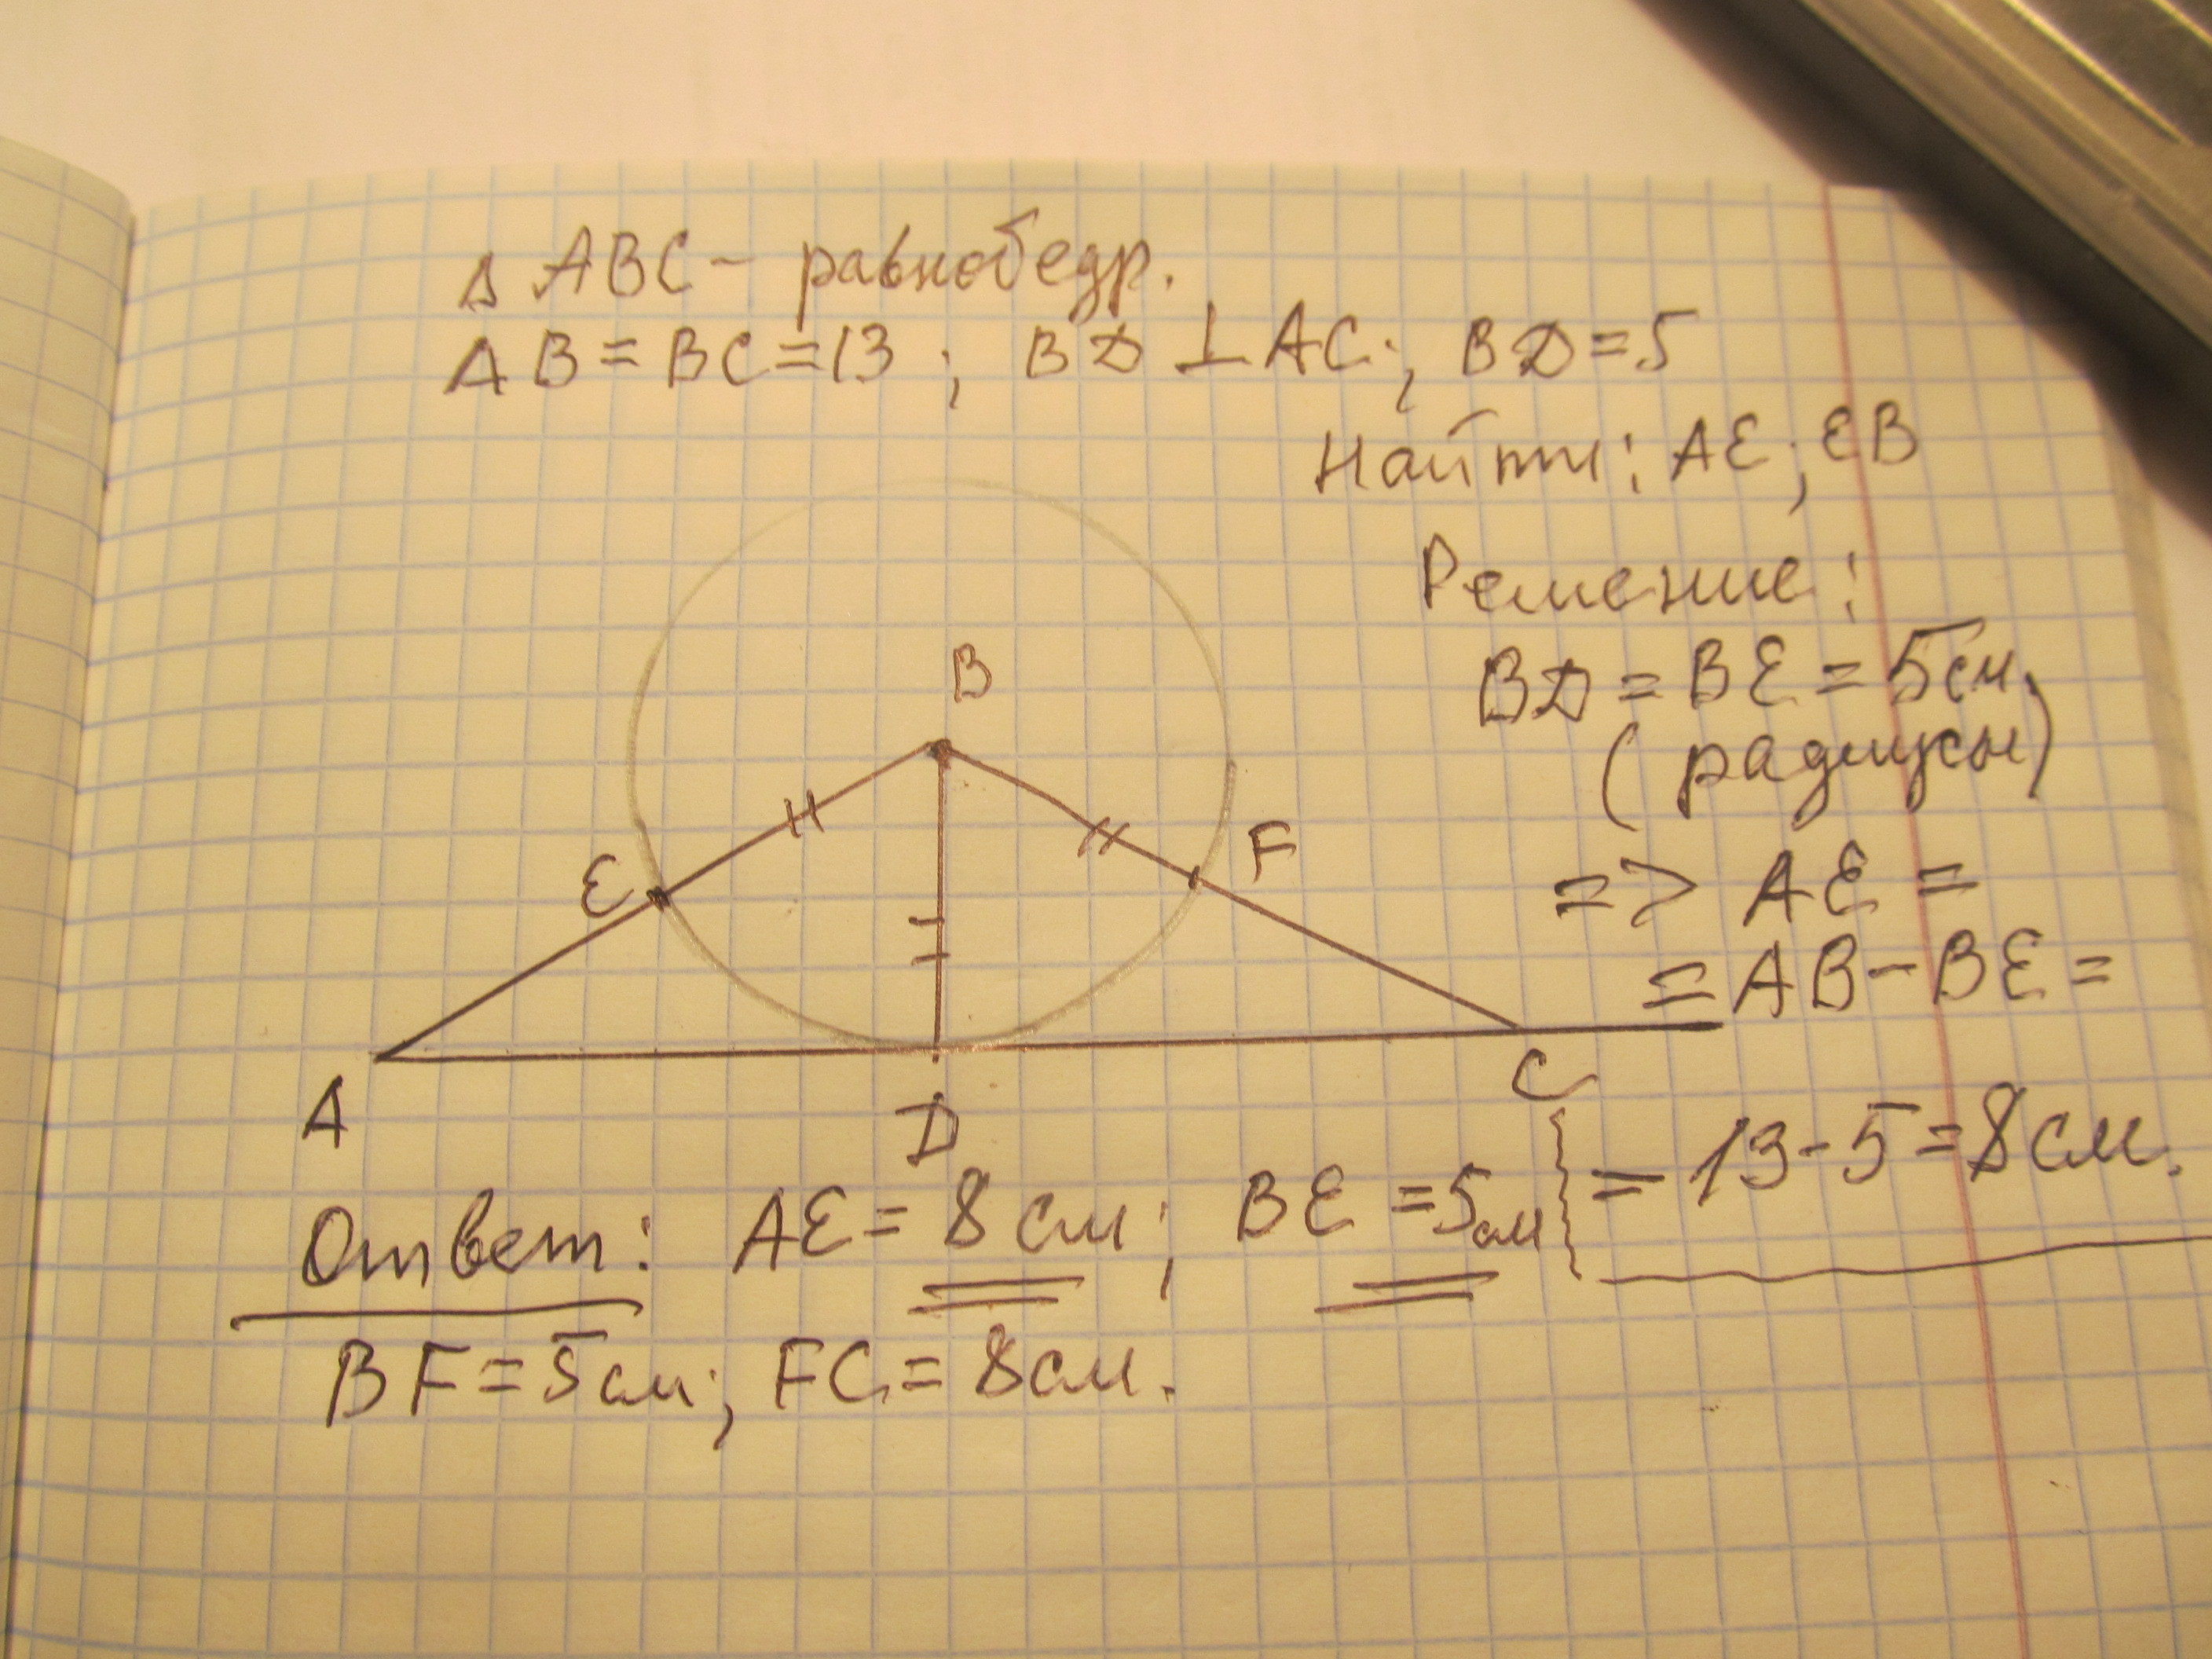 Δ ABC - равнобедр.
AB = BC = 13 ; BD ⊥ AC ; BD = 5
Найти: AE ; EB
Решение:
BD = BE = 5 см.
(радиусы)
=> AE =
= AB - BE =
= 13 - 5 = 8 см.
B
E
F
A
D
C
Ответ: AE = 8 см ; BE = 5 см
BF = 5 см ; FC = 8 см.